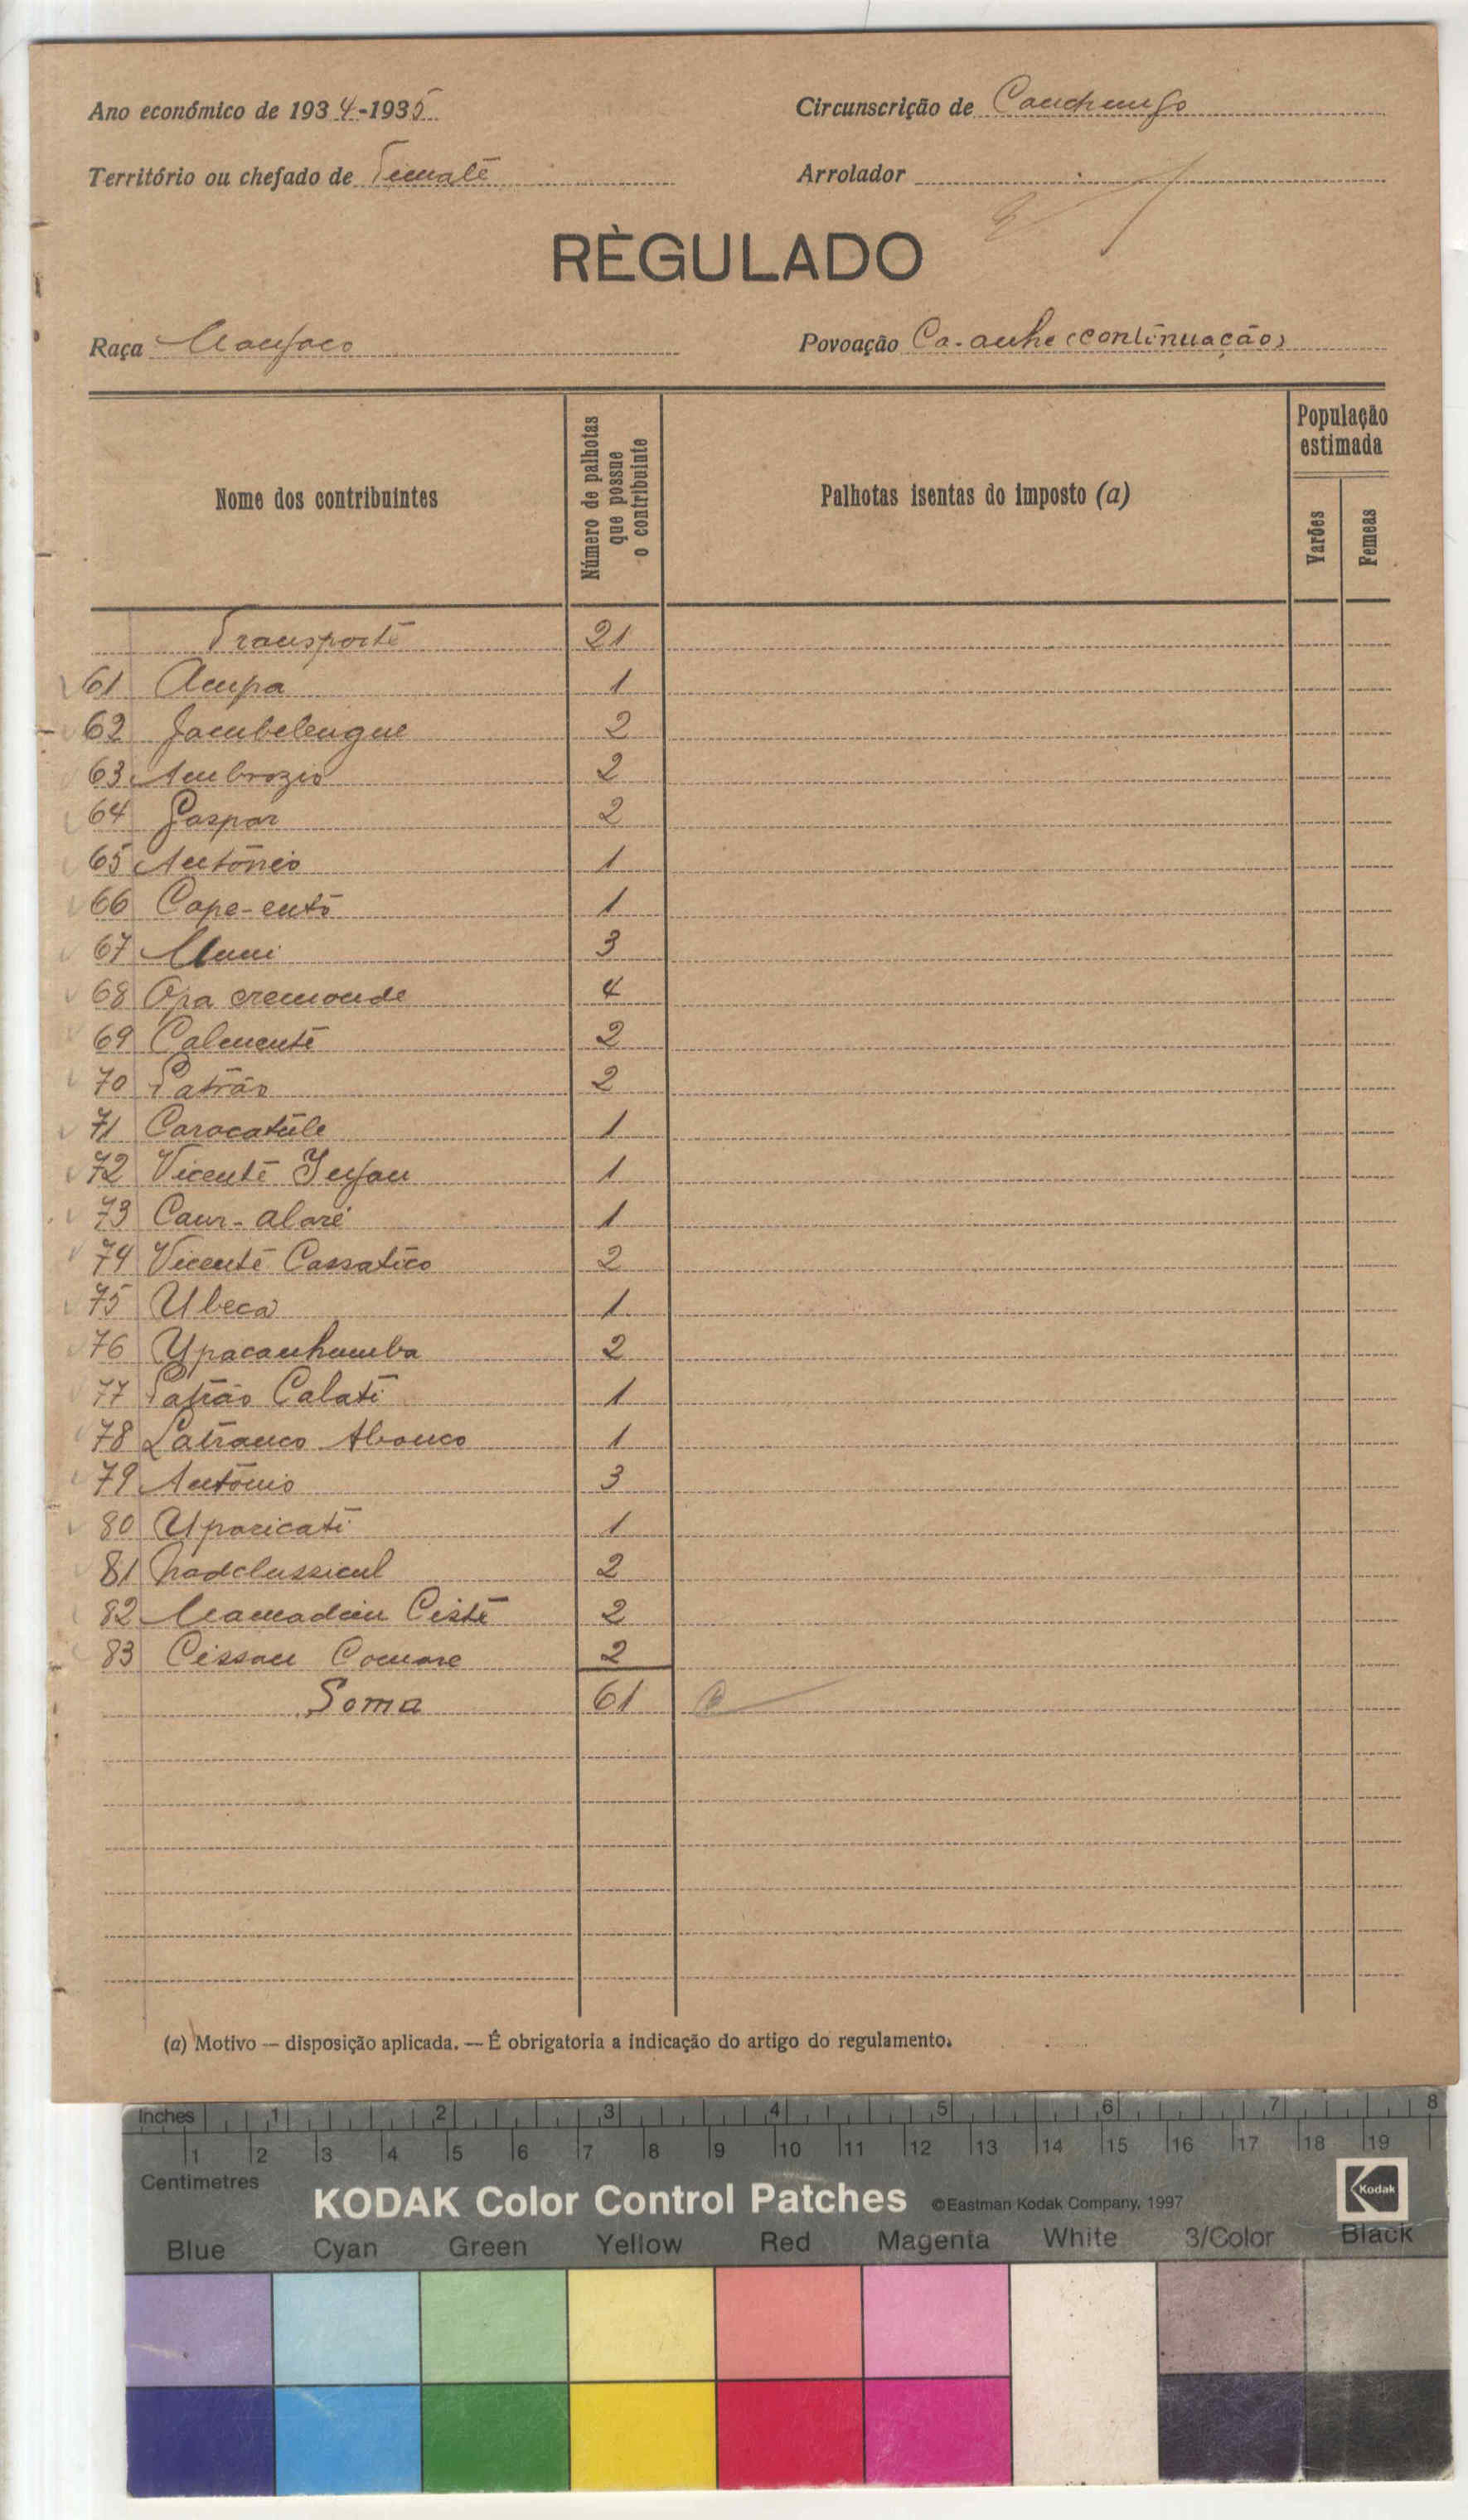 Ano económico de 1934-1935
Circunscrição de Canchungo
Território ou chefado de
Arrolador
RÈGULADO
Raça Manjaco
Povoação Ca-anhe (continuação)
Nome dos contribuintes
Número de palhotas que possue o contribuinte
Palhotas isentas do imposto (a)
População estimada
Varões
Femeas
Transporte 21
61 Acupa 1
62 Jambelengue 2
63 Ambrozio 2
64 Gaspar 2
65 António 1
66 Cape-entó 1
67 3
68 Opa cremonde 4
69 Calmenté 2
70 Patrão 2
71 Caracatúle 1
72 Vicente 1
73 Caur-alaré 1
74 Vicente Cassatico 2
75 Ubeca 1
76 Upacanhumba 2
77 Patrão Calati 1
78 1
79 António 3
80 Uparicati 1
81 2
82 2
83 2
Soma 61
(a) Motivo — disposição aplicada. — É obrigatoria a indicação do artigo do regulamento.
Inches 1 2 3 4 5 6 7 8
1 2 3 4 5 6 7 8 9 10 11 12 13 14 15 16 17 18 19
Centimetres
KODAK Color Control Patches ©Eastman Kodak Company, 1997 Kodak
Blue Cyan Green Yellow Red Magenta White 3/Color Black